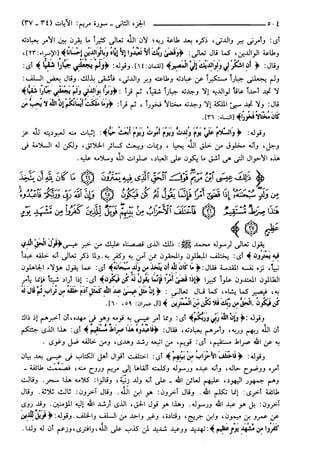 ٥٠٤ الجزء الثانى ـ سورة مريم: الآيات (٣٤ - ٣٧)
أى: وأمرنى ببر والدتى، ذكره بعد طاعة ربه؛ لأن الله تعالى كثيراً ما يقرن بين الأمر بعبادته
وطاعة الوالدين، كما قال تعالى: ﴿وَقَضَىٰ رَبُّكَ أَلَّا تَعْبُدُوا إِلَّا إِيَّاهُ وَبِالْوَالِدَيْنِ إِحْسَانًا﴾ [الإسراء: ٢٣]،
وقال: ﴿أَنِ اشْكُرْ لِي وَلِوَالِدَيْكَ إِلَيَّ الْمَصِيرُ﴾ [لقمان: ١٤]. وقوله: ﴿وَلَمْ يَجْعَلْنِي جَبَّارًا شَقِيًّا﴾ أى:
ولم يجعلنى جباراً مستكبراً عن عبادته وطاعته وبر والدتى، فأشقى بذلك. وقال بعض السلف:
لا تجد أحداً عاقاً لوالديه إلا وجدته جباراً شقياً، ثم قرأ: ﴿وَبَرًّا بِوَالِدَتِي وَلَمْ يَجْعَلْنِي جَبَّارًا شَقِيًّا﴾
قال: ولا تجد سيئ الملكة إلا وجدته مختالاً فخوراً، ثم قرأ: ﴿وَمَا مَلَكَتْ أَيْمَانُكُمْ إِنَّ اللَّهَ لَا يُحِبُّ مَن
كَانَ مُخْتَالًا فَخُورًا﴾ [النساء: ٣٦].
وقوله: ﴿وَالسَّلَامُ عَلَيَّ يَوْمَ وُلِدتُّ وَيَوْمَ أَمُوتُ وَيَوْمَ أُبْعَثُ حَيًّا﴾: إثبات منه لعبوديته لله عز
وجل، وأنه مخلوق من خلق الله يحيا ويموت ويبعث كسائر الخلائق، ولكن له السلامة فى
هذه الأحوال التى هى أشق ما يكون على العباد، صلوات الله وسلامه عليه.
ذَٰلِكَ عِيسَى ابْنُ مَرْيَمَ قَوْلَ الْحَقِّ الَّذِي فِيهِ يَمْتَرُونَ مَا كَانَ لِلَّهِ أَن يَتَّخِذَ
مِن وَلَدٍ سُبْحَانَهُ إِذَا قَضَىٰ أَمْرًا فَإِنَّمَا يَقُولُ لَهُ كُن فَيَكُونُ وَإِنَّ اللَّهَ رَبِّي وَرَبُّكُمْ فَاعْبُدُوهُ
هَٰذَا صِرَاطٌ مُّسْتَقِيمٌ فَاخْتَلَفَ الْأَحْزَابُ مِن بَيْنِهِمْ فَوَيْلٌ لِّلَّذِينَ كَفَرُوا مِن مَّشْهَدِ يَوْمٍ
عَظِيمٍ
يقول تعالى لرسوله محمد ﷺ: ذلك الذى قصصناه عليك من خبر عيسى ﴿قَوْلَ الْحَقِّ الَّذِي
فِيهِ يَمْتَرُونَ﴾ أى: يختلف المبطلون والمحقون ممن آمن به وكفر به. ولما ذكر تعالى أنه خلقه عبداً
نبياً، نزه نفسه المقدسة فقال: ﴿مَا كَانَ لِلَّهِ أَن يَتَّخِذَ مِن وَلَدٍ سُبْحَانَهُ﴾ أى: عما يقول هؤلاء الجاهلون
الظالمون المعتدون علواً كبيرا ﴿إِذَا قَضَىٰ أَمْرًا فَإِنَّمَا يَقُولُ لَهُ كُن فَيَكُونُ﴾ أى: إذا أراد شيئاً فإنما يأمر
به، فيصير كما يشاء، كما قال تعالى: ﴿إِنَّ مَثَلَ عِيسَىٰ عِندَ اللَّهِ كَمَثَلِ آدَمَ خَلَقَهُ مِن تُرَابٍ ثُمَّ قَالَ لَهُ
كُن فَيَكُونُ. الْحَقُّ مِن رَّبِّكَ فَلَا تَكُن مِّنَ الْمُمْتَرِينَ﴾ [آل عمران: ٥٩، ٦٠].
وقوله: ﴿وَإِنَّ اللَّهَ رَبِّي وَرَبُّكُمْ﴾ أى: ومما أمر عيسى به قومه وهو فى مهده، أن أخبرهم إذ ذاك
أن الله ربهم وربه، وأمرهم بعبادته، فقال: ﴿فَاعْبُدُوهُ هَٰذَا صِرَاطٌ مُّسْتَقِيمٌ﴾ أى: هذا الذى جئتكم
به عن الله صراط مستقيم، أى: قويم، من اتبعه رشد وهدى، ومن خالفه ضل وغوى.
وقوله: ﴿فَاخْتَلَفَ الْأَحْزَابُ مِن بَيْنِهِمْ﴾ أى: اختلفت أقوال أهل الكتاب فى عيسى بعد بيان
أمره ووضوح حاله، وأنه عبده ورسوله وكلمته ألقاها إلى مريم وروح منه، فصممت طائفة ـ
وهم جمهور اليهود، عليهم لعائن الله ـ على أنه ولد زنية، وقالوا: كلامه هذا سحر. وقالت
طائفة أخرى: إنما تكلم الله. وقال آخرون: هو ابن الله. وقال آخرون: ثالث ثلاثة. وقال
آخرون: بل هو عبد الله ورسوله. وهذا هو قول الحق، الذى أرشد الله إليه المؤمنين. وقد روى
عن عمرو بن ميمون، وابن جريج، وقتادة، وغير واحد من السلف والخلف. وقوله: ﴿فَوَيْلٌ لِّلَّذِينَ
كَفَرُوا مِن مَّشْهَدِ يَوْمٍ عَظِيمٍ﴾: تهديد ووعيد شديد لمن كذب على الله، وافترى، وزعم أن له ولدا.